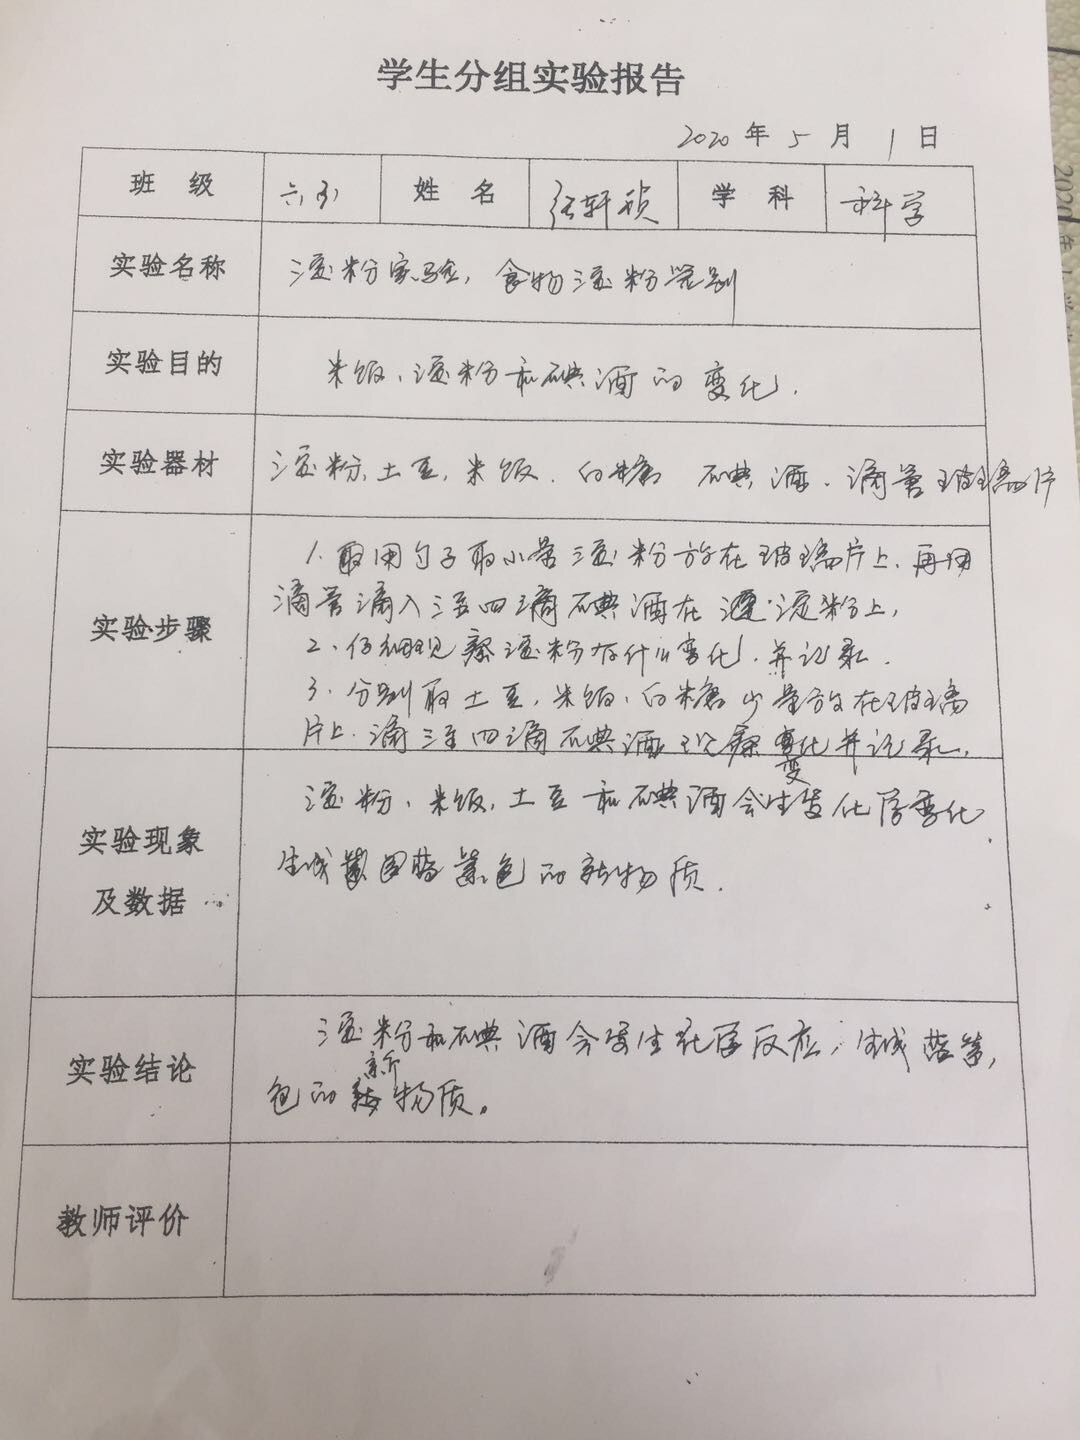 学生分组实验报告
2020 年 5 月 1 日
班 级 姓 名 轩 学 科 科学
实验名称 淀粉实验，食物淀粉鉴别
实验目的 米饭、淀粉和碘酒的变化.
实验器材 淀粉、土豆，米饭. 白糖 碘酒、滴管玻璃片
实验步骤
1. 取用勺子取小量淀粉放在玻璃片上，再用
滴管滴入三至四滴碘酒在淀粉上，
2、仔细观察淀粉有什么变化，并记录.
3、分别取土豆，米饭，白糖少量放在玻璃
片上，滴三至四滴碘酒观察变化并记录，
变
实验现象
及数据
淀粉、米饭，土豆和碘酒会生发化学变化
生成蓝紫色的新物质.
实验结论
淀粉和碘酒会发生化学反应，生成蓝紫，
新
色的物质。
教师评价
2020年